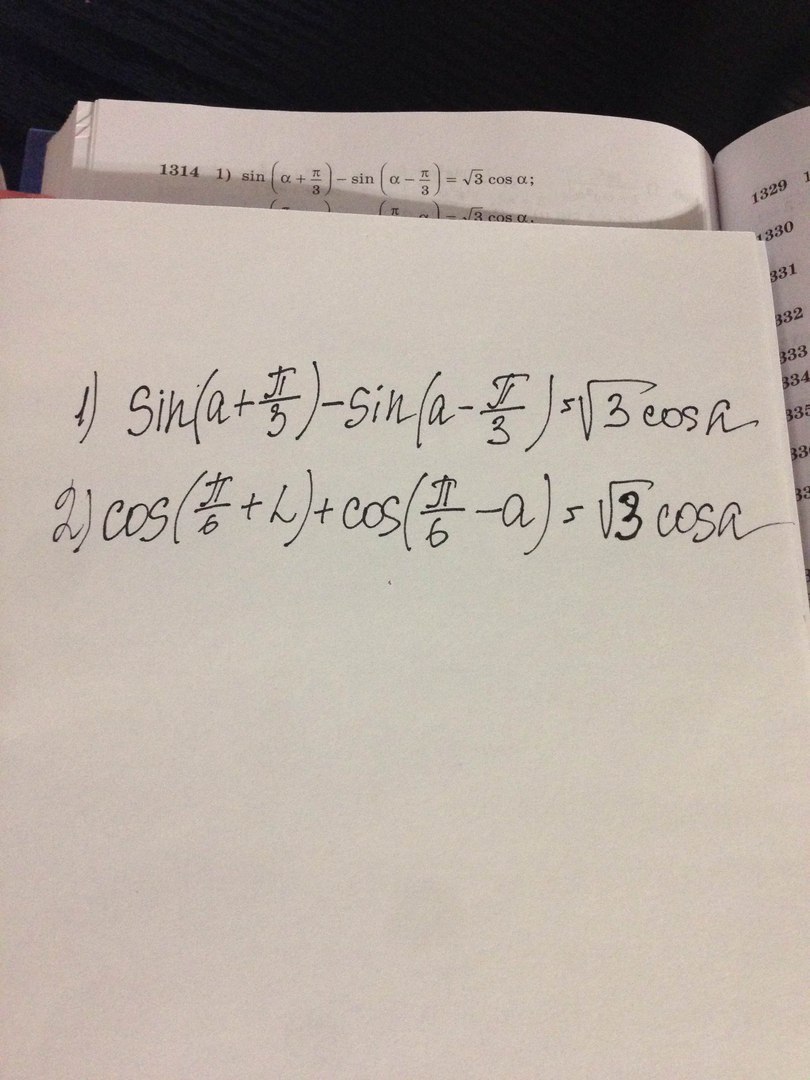 1314 1) sin (α + π/3) − sin (α − π/3) = √3 cos α;
π α) = √3 cos α.
1329 1
1330
331
332
333
334
335
1) Sin(a + π/3) − Sin(a − π/3) = √3 cos a
2) cos(π/6 + L) + cos(π/6 − a) = √3 cos a